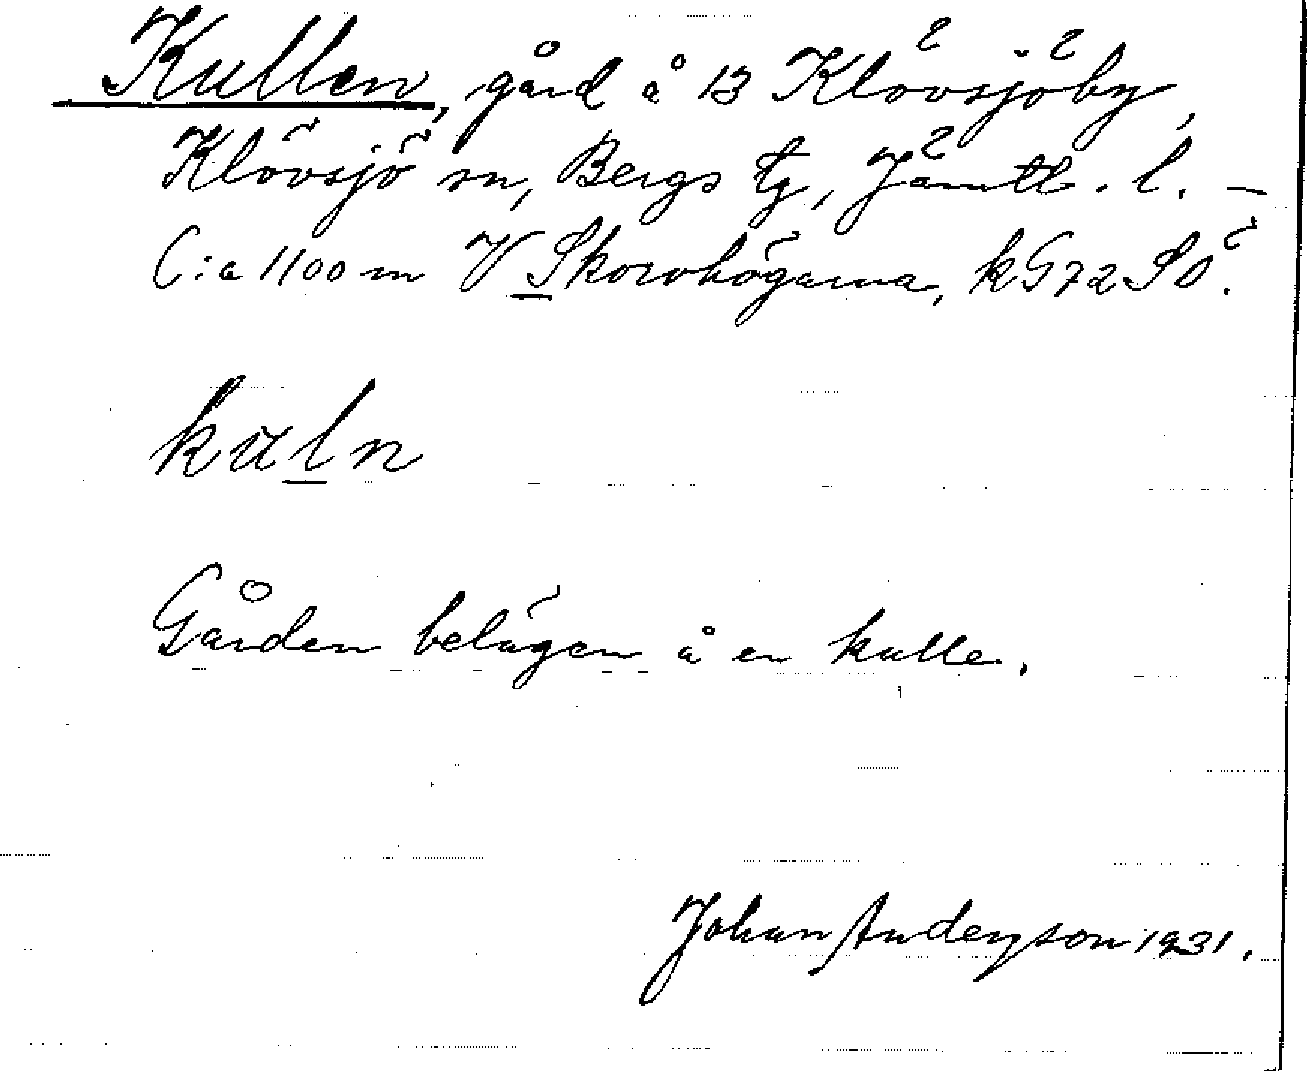 Kullen, gård å 13 Klövsjöby,
Klövsjö sn, Bergs tg, Jämtl. l. —
C:a 1100 m V Skorvhögarna, kG72SÖ.
kuln
Gården belägen å en kulle.
Johan Anderson 1931.